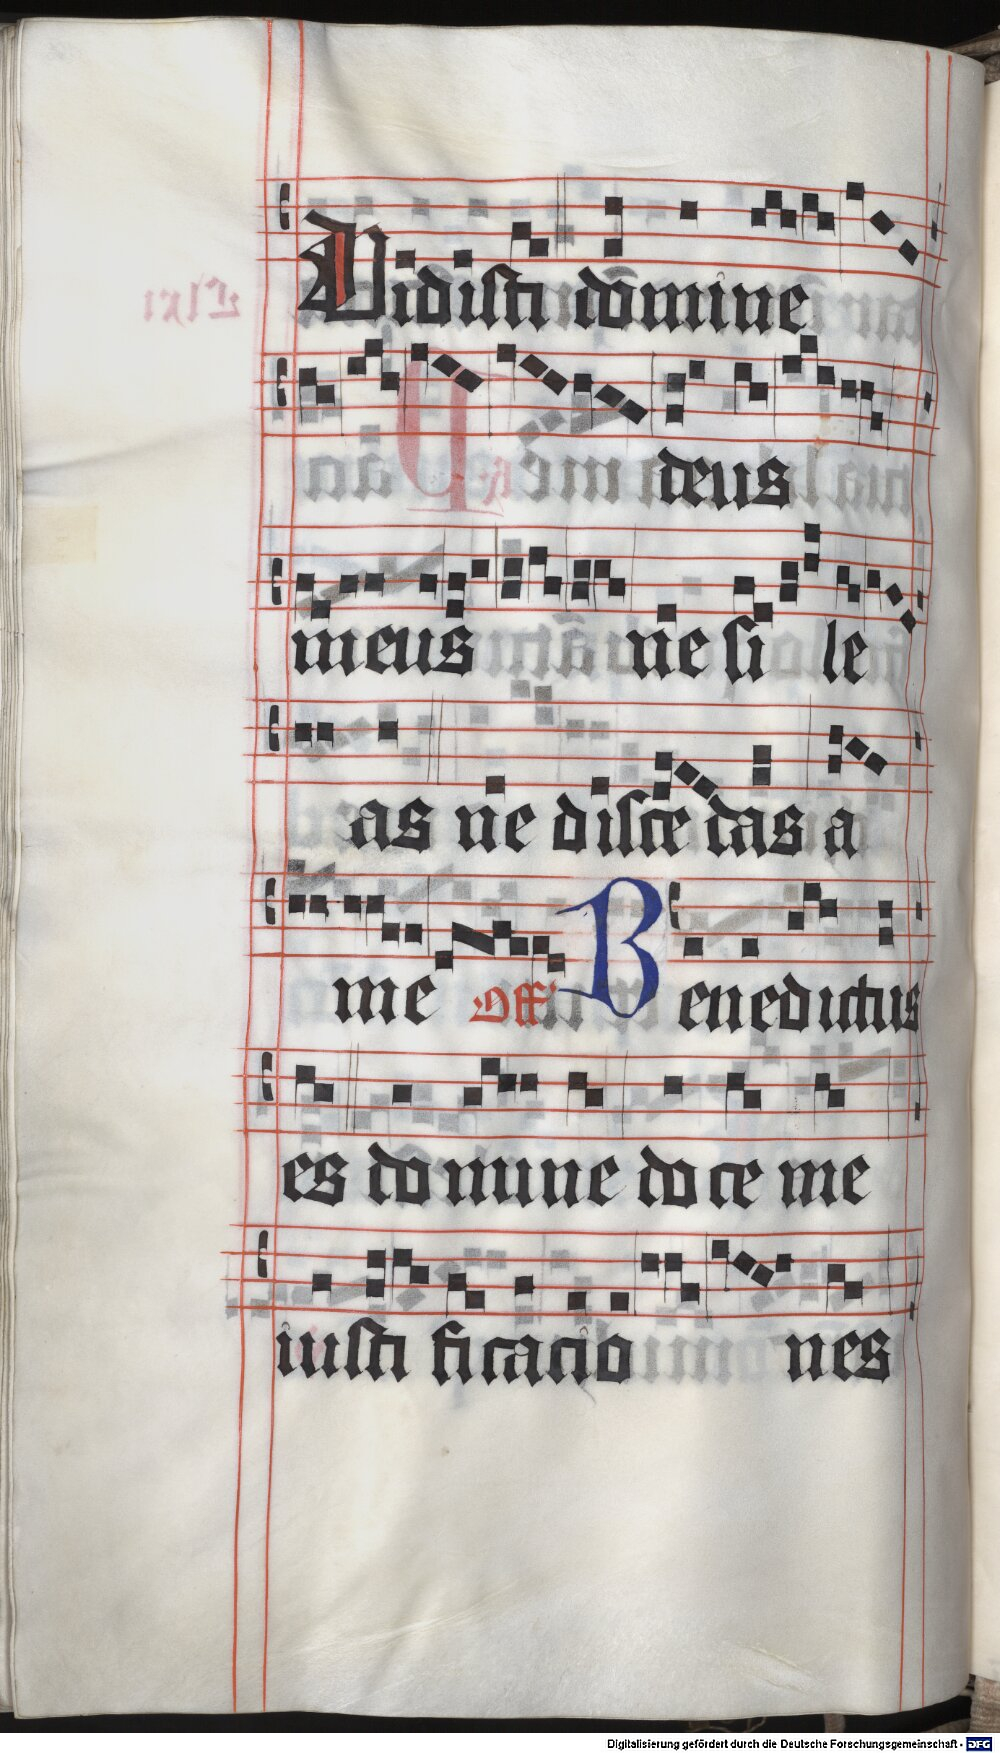 Vidisti domine
deus
meus ne si le
as ne disce das a
me Off Benedictus
es do mine do ce me
iusti ficacio nes
Digitalisierung gefördert durch die Deutsche Forschungsgemeinschaft - DFG